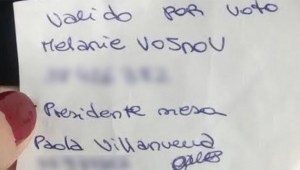 Valido por voto
Melanie VOSNOV
Presidente mesa
Paola Villanueva